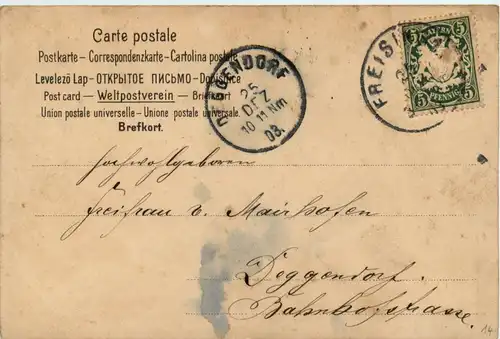 Carte postale
Postkarte – Correspondenzkarte – Cartolina postale
Levelező Lap – ОТКРЫТОЕ ПИСЬМО – Dopisnice
Post card – Weltpostverein – Briefkort
Union postale universelle – Unione postale universale.
Brefkort.
DEGGENDORF
25
DEZ
10 11 Nm
03.
FREISI
BAYERN
5 5
5 PFENNIG 5
Hochwohlgeboren
Freifrau v. Mairhofen
Deggendorf.
Bahnhofstrasse.
14